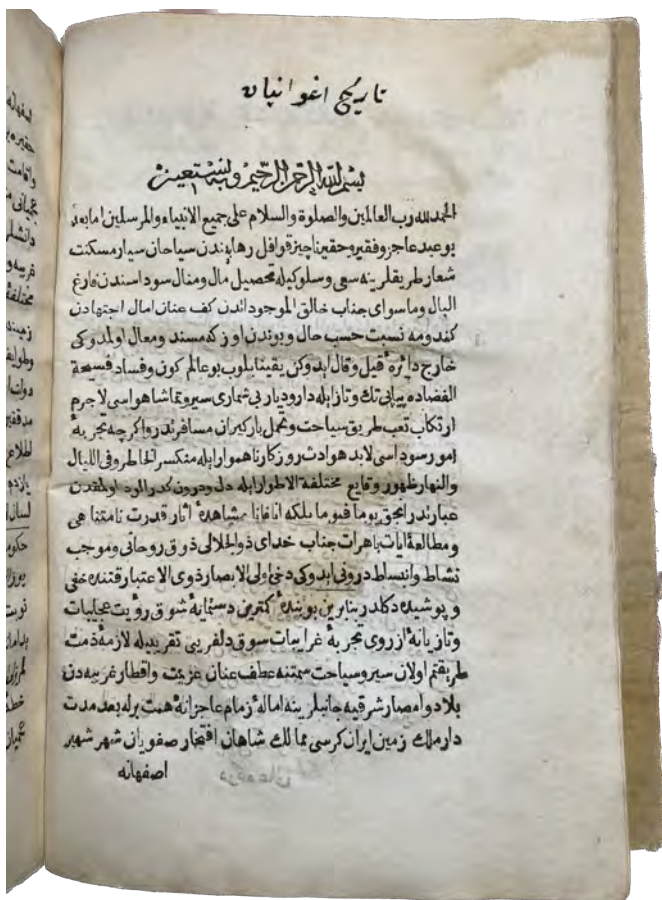 تاريخ اغوانيان
بسم الله الرحمن الرحيم وبه نستعين
الحمد لله رب العالمين والصلوة والسلام على جميع الانبياء والمرسلين اما بعد
بو عبد عاجز وفقير وحقير ناچيز قوافل رهابيندن سياحان سيار مسكنت
شعار طريقلرينه سعى وسلوك ايله تحصيل مال ومنال سوداسندن فارغ
البال وما سواى جناب خالق الموجوداتدن كف عنان امال اجتهادن
كندومه نسبت حسب حال وبوندن اوزكه مسند ومعال اولمدوكى
خارج دائرهٔ قيل وقال ايدوكن يقينا بلوب بو عالم كون وفساد فسيحة
الفضاده پياپى تك وتاز ايله دار وديار بى شمارى سير وتماشا هواسى لاجرم
ارتكاب تعب طريق سياحت وتحمل باركيران مسافرتدر واكرچه تجربهٔ
امور سوداسى لابد حوادث روزكار ناهموار ايله منكسر الخاطر وفى الليال
والنهار ظهور وقايع مختلفة الاطوار ايله دل ودرون كدر الود اولمقدن
عبارتدر انجق يوما فيوما بلكه انا فانا مشاهدهٔ اثار قدرت نامتناهى
ومطالعهٔ ايات باهرات جناب خداى ذو الجلالى ذوق روحانى وموجب
نشاط وانبساط درونى ايدوكى دخى اولى الابصار ذوى الاعتبار قتنده خفى
وپوشيده دكلدر بنابرين بو بندهٔ كمترين دستمايهٔ شوق رؤيت عجايبات
وتازيانهٔ ازروى تجربهٔ غرايبات سوق دلفريبى تقريبيله لازمهٔ ذمت
طريقتم اولان سير وسياحت سمتنه عطف عنان عزيمت واقطار غربيه دن
بلاد وامصار شرقيه جانبلرينه امالهٔ زمام عاجزانهٔ همت برله بعد مدت
دار ملك زمين ايران كرسى ممالك شاهان افتخار صفويان شهر شهير
اصفهانه